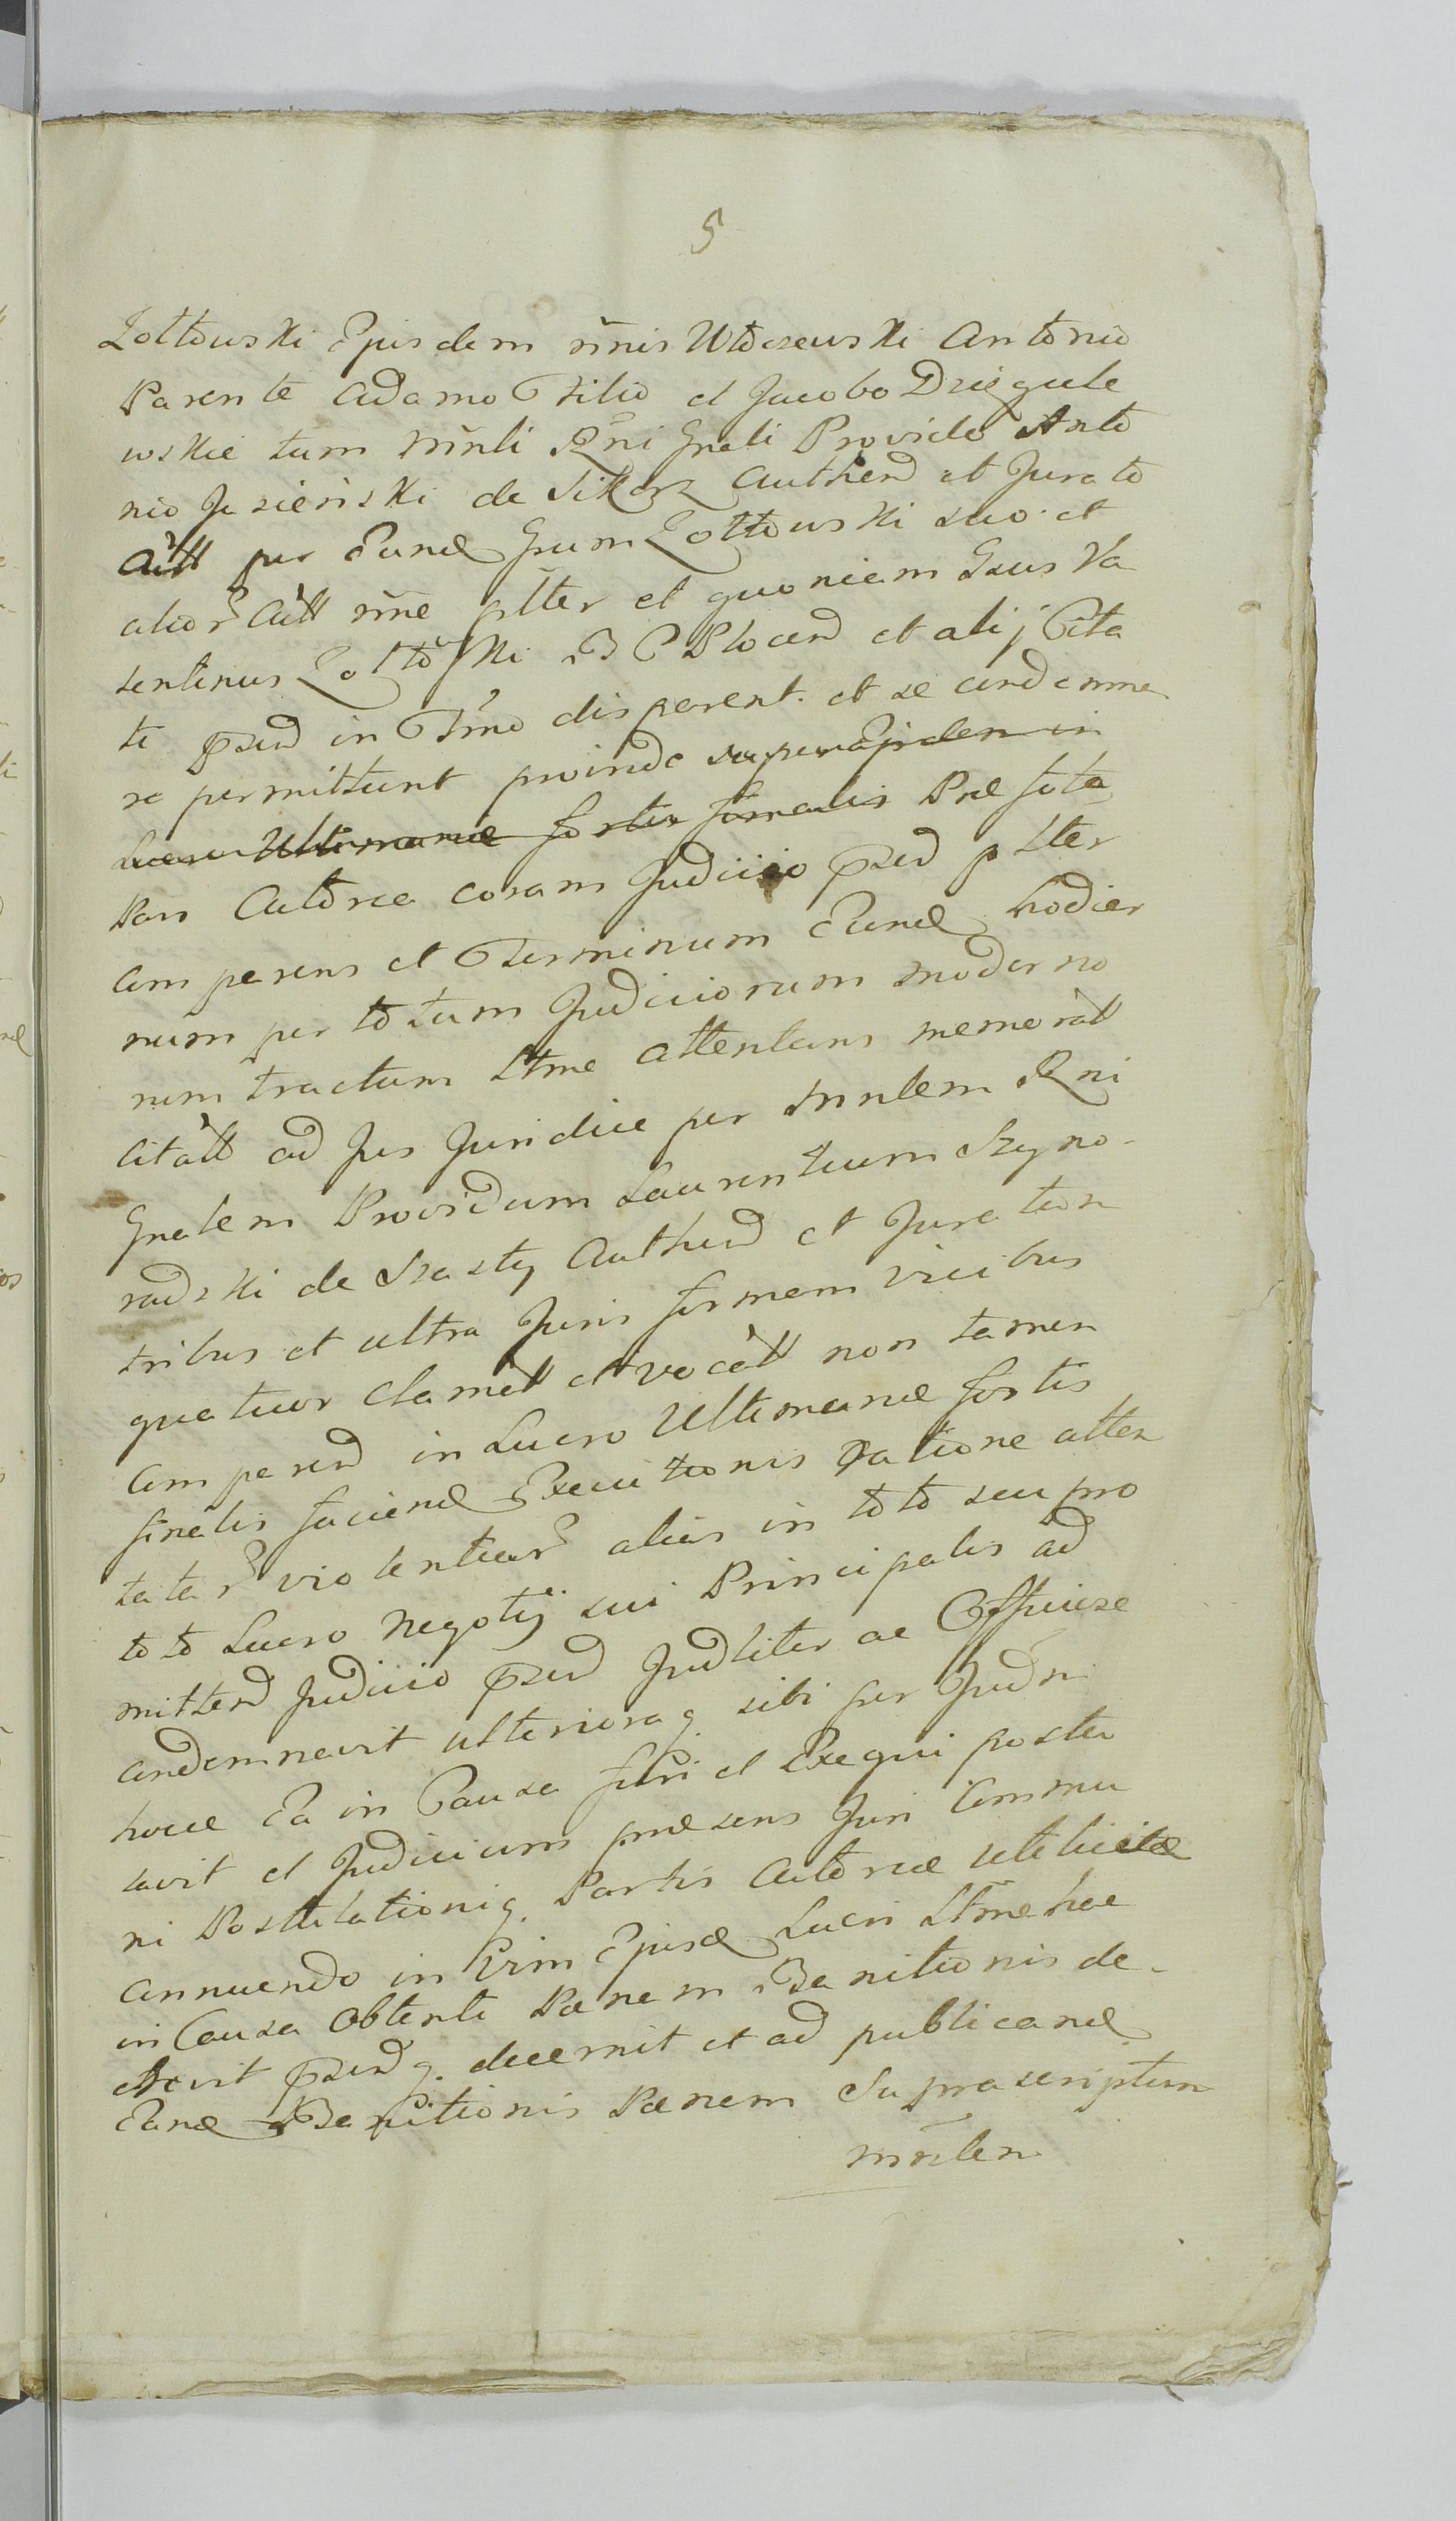 5
Zołtowski Ejusdem ninis Włoczewski Antonio
Parente Adamo Filio et Jacobo Dzięgiele
wskie tum Mnli Rni Gnali Provido Anto
nio Jasieński de Sikorz Authen et Jurato
Citt per Eund Gsum Zołtowski suo et
alior Citt nne plter et quoniam Gsus Va
lentinus Zołtowski B C Plocen et alij Cita
ti psed in Tmo disparent et se condemna
re permittunt proinde
Lucro Ultimariae fortis finalis Praefata
Pars Actorea coram Judicio psed plter
comparens et Terminum Eund hodier
num per totum Judiciorum moder no
rum tractum Ltme attentans memoratt
Citatt ad Jus Juridice per Mnlem Rni
Gnalem Providum Laurentium Szyno
radzki de Szasty Authen et Juratum
tribus et ultra Juris formam vicibus
quatuor clamatt et vocatt non tamen
comparen in Lucro Ultimariae fortis
finalis faciend Executionis ratione atten
tatar violentiar alias in toto seu pro
toto Lucro Negotij sui Principalis ad
mitten Judicio psed Judliter ac Officiose
condemnavit ulterioraq sibi per Judm
hocce Ea in Causa fieri et Exequi postu
lavit et Judicium praesens Juri Commu
ni Postulationiq Partis Actoreae utilicitae
annuendo in Vim Ejusd Lucri Ltme hac
in Causa Obtenti Paenam Banitionis de
crevit psedq decernit et ad publicand
Eand Banitionis Paenam Suprascriptum
mnlem